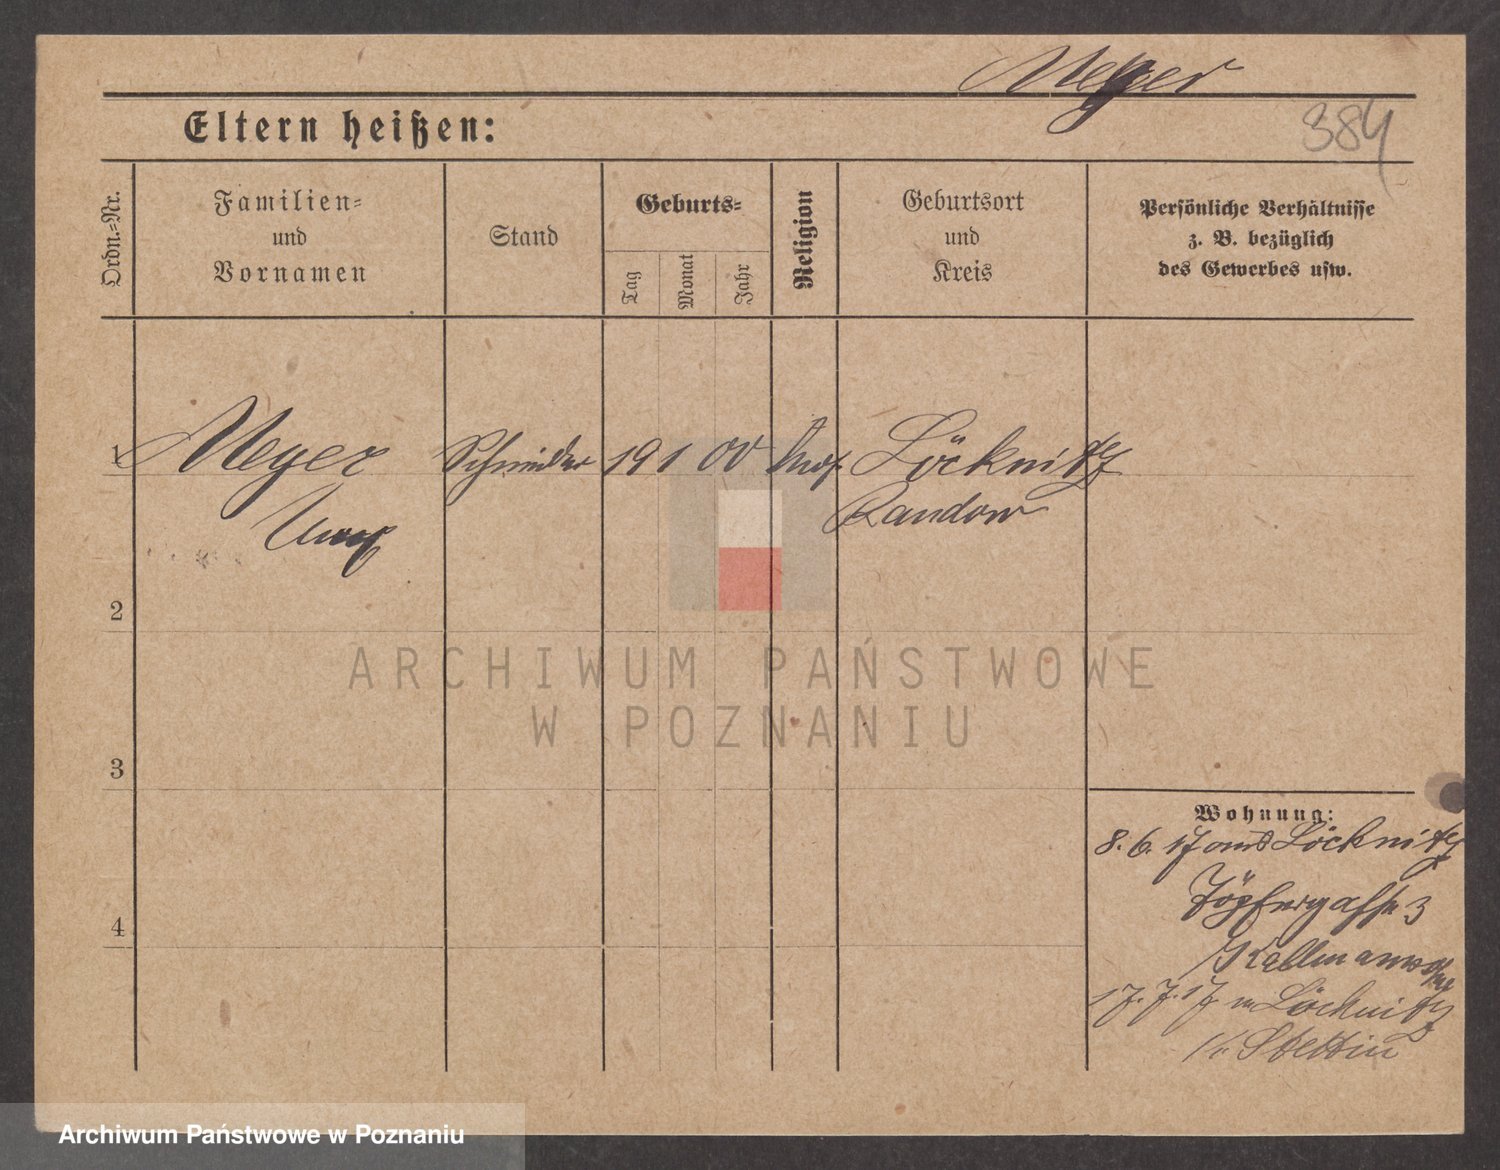 Meyer
384
Eltern heißen:
Ordn.-Nr.
Familien-
und
Vornamen
Stand
Geburts-
Tag
Monat
Jahr
Religion
Geburtsort
und
Kreis
Persönliche Verhältnisse
z. B. bezüglich
des Gewerbes usw.
1 Meyer Schneider 19 1 00 Löcknitz
Randow
2
3
4
Wohnung:
8. 6. 17 aus Löcknitz
Töpfergasse 3
17. 7. 17 n Löcknitz
Stettin
ARCHIWUM PAŃSTWOWE
W POZNANIU
Archiwum Państwowe w Poznaniu